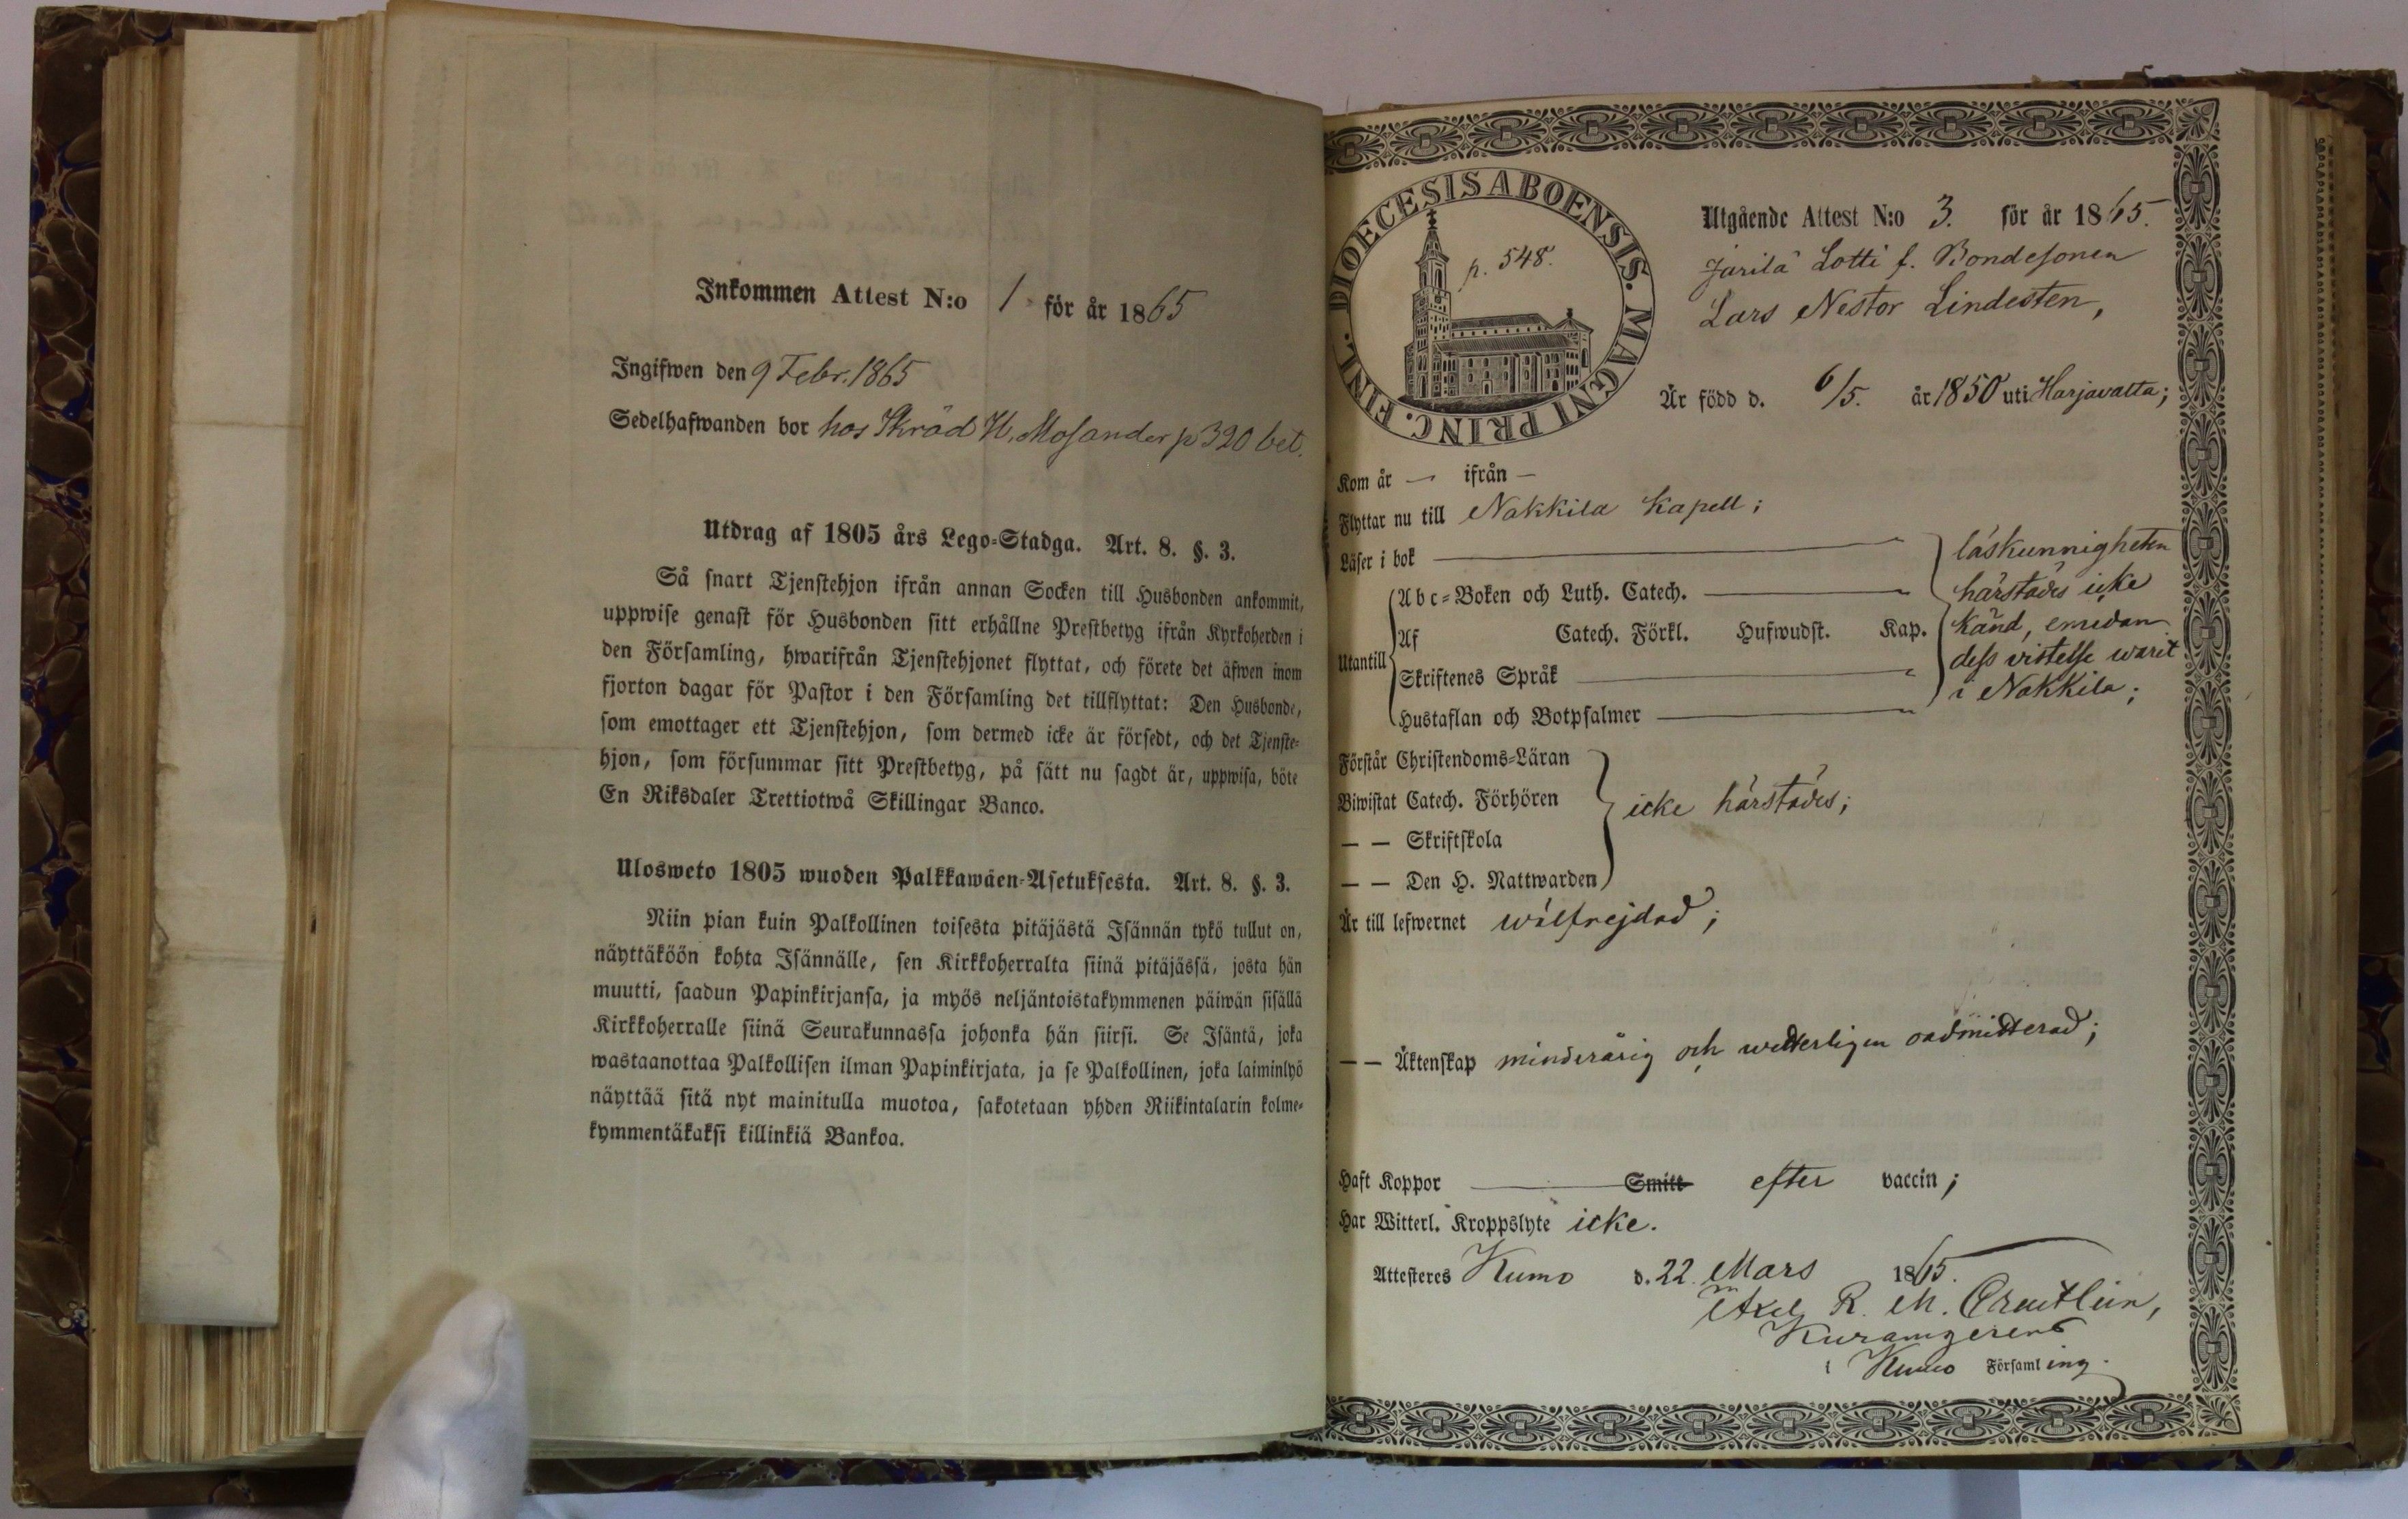 Inkommen Attest N:o 1 för år 1865
Ingifwen den 9 Febr. 1865
Sedelhafwanden bor hos Skräd H. Mosander p 320 bet.
Utdrag af 1805 års Lego-Stadga. Art. 8. §. 3.
Så snart Tjenstehjon ifrån annan Socken till Husbonden ankommit,
uppwise genast för Husbonden sitt erhållne Prestbetyg ifrån Kyrkoherden i
den Församling, hwarifrån Tjenstehjonet flyttat, och förete det äfwen inom
fjorton dagar för Pastor i den Församling det tillflyttat: Den Husbonde,
som emottager ett Tjenstehjon, som dermed icke är försedt, och det Tjenste-
hjon, som försummar sitt Prestbetyg, på sätt nu sagdt är, uppwisa, böte
En Riksdaler Trettiotwå Skillingar Banco.
Ulosweto 1805 wuoden Palkkawäen-Asetuksesta. Art. 8. §. 3.
Niin pian kuin Palkollinen toisesta pitäjästä Isännän tykö tullut on,
näyttäköön kohta Isännälle, sen Kirkkoherralta siinä pitäjässä, josta hän
muutti, saadun Papinkirjansa, ja myös neljäntoistakymmenen päiwän sisällä
Kirkkoherralle siinä Seurakunnassa johonka hän siirsi. Se Isäntä, joka
wastaanottaa Palkollisen ilman Papinkirjata, ja se Palkollinen, joka laiminlyö
näyttää sitä nyt mainitulla muotoa, sakotetaan yhden Riikintalarin kolme-
kymmentäkaksi killinkiä Bankoa.
DIOECESIS ABOENSIS. MAGNI PRINC. FINL.
p. 548.
Utgående Attest N:o 3. för år 1865.
Jarila Lotti f. Bondesonen
Lars Nestor Lindesten,
Är född d. 6/5. år 1850 uti Harjavalta;
Kom år — ifrån —
Flyttar nu till Nakkila Kapell;
Läser i bok
Utantill
Abc-Boken och Luth. Catech.
Af Catech. Förkl. Hufwudst. Kap.
Skriftenes Språk
Hustaflan och Botpsalmer
läskunnigheten
härstädes icke
känd, emedan
dess vistelse warit
i Nakkila;
Förstår Christendoms-Läran
Biwistat Catech. Förhören
— — Skriftskola
— — Den H. Nattwarden
icke härstädes;
Är till lefwernet wälfrejdad;
— — Äktenskap minderårig och wetterligen oadmitterad;
Haft Koppor Smitt efter vaccin;
Har Witterl. Kroppslyte icke.
Attesteres Kumo d. 22. Mars 1865.
Axel R. M. Creutlein,
Kuramgerens
i Kumo Församling.